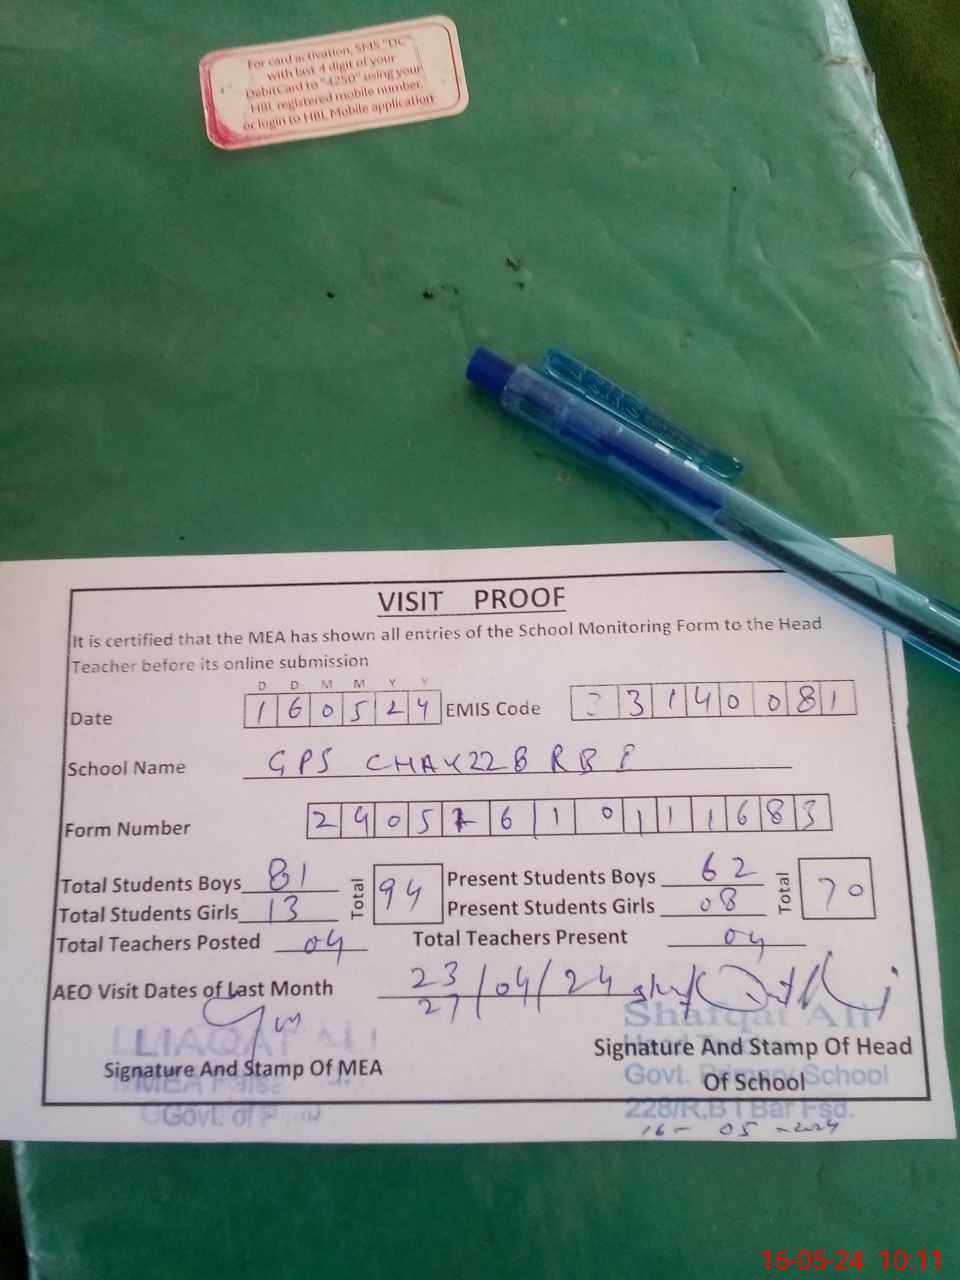 For card activation, SMS "DC"
with last 4 digit of your
DebitCard to "4250" using your
HBL registered mobile number
or login to HBL Mobile application
VISIT PROOF
It is certified that the MEA has shown all entries of the School Monitoring Form to the Head
Teacher before its online submission
D D M M Y Y
Date 1 6 0 5 2 4 EMIS Code 3 3 1 4 0 0 8 1
School Name GPS CHAK 228 RB
Form Number 2 4 0 5 1 6 1 0 1 1 1 6 8 3
Total Students Boys 81 Total 94 Present Students Boys 62 Total 70
Total Students Girls 13 Present Students Girls 08
Total Teachers Posted 04 Total Teachers Present 04
AEO Visit Dates of Last Month 23/04/24
27
LIAQAT ALI
Shafqat Ali
Signature And Stamp Of MEA Signature And Stamp Of Head
Of School
MEA
Govt. Primary School
Govt. of
228/R.B I Bar Fsd.
16-05-2024
16-05-24 10:11